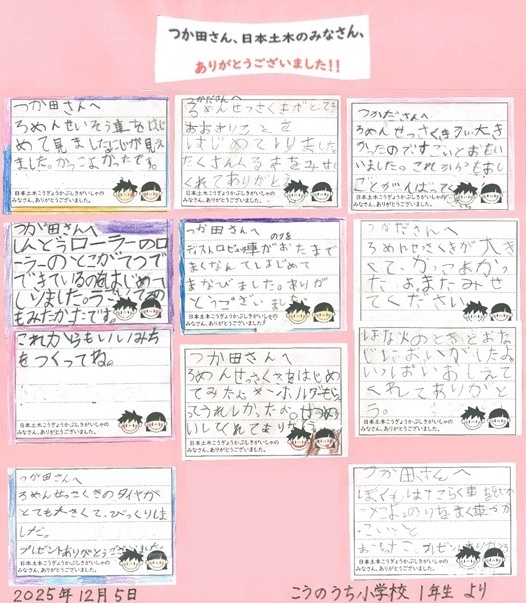 つか田さん、日本土木のみなさん、
ありがとうございました!!
つか田さんへ
ろめんせいそう車をはじ
めて見ましたにじが見え
ました。かっこよかったです。
日本土木こうぎょうかぶしきがいしゃの
みなさん、ありがとうございました。
つかださんへ
ろめんせっさくきがとても
おおきいことを
はじめてしりました。
たくさんくるまをみせて
くれてありがとう
日本土木こうぎょうかぶしきがいしゃの
みなさん、ありがとうございました。
つかださんへ
ろめんせっさくきが大き
かったのですごいとおもい
いました。これからもおし
ごとがんばって
日本土木こうぎょうかぶしきがいしゃの
みなさん、ありがとうございました。
つか田さんへ
しんどうローラーのロ
ーラーのとこがてつで
できているのをはじめて
しりました。
もみたかたです
これからもいいみち
をつくってね。
日本土木こうぎょうかぶしきがいしゃの
みなさん、ありがとうございました。
つか田さんへ
のタを
はじめて
まなびました。ありが
とうございました
日本土木こうぎょうかぶしきがいしゃの
みなさん、ありがとうございました。
つかださんへ
ろめんせっさくきが大き
くて、かっこよかっ
たよまたみせ
てください
はな火のときとおな
じにおいがしたよ
いっぱいおしえて
くれてありがと
う。
日本土木こうぎょうかぶしきがいしゃの
みなさん、ありがとうございました。
つか田さんへ
ろめんせっさくきをはじめ
てみたよ。マンホールグッズもら
ってうれしかったよ。せつめ
いしてくれてありがとう
日本土木こうぎょうかぶしきがいしゃの
みなさん、ありがとうございました。
つか田さんへ
ろめんせっさくきのタイヤが
とても大きくて、びっくりしま
した。
プレゼントありがとうございました。
日本土木こうぎょうかぶしきがいしゃの
みなさん、ありがとうございました。
つか田さんへ
ぼくも、はたらく車
プレゼントありがとう
日本土木こうぎょうかぶしきがいしゃの
みなさん、ありがとうございました。
2025年12月5日
こうのうち小学校 1年生 より